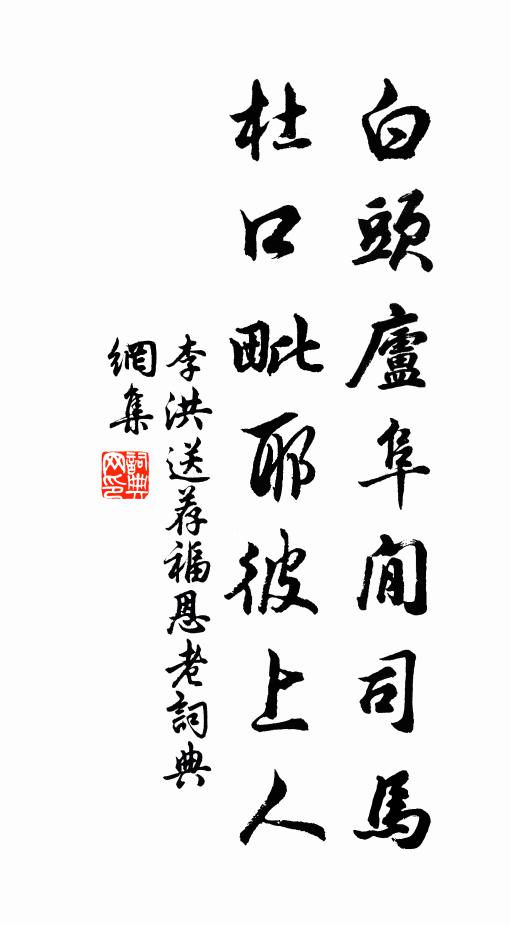 白頭廬阜閒司馬
杜口毗耶彼上人
李洪送荐福恩老詞典
網集
詞典网印